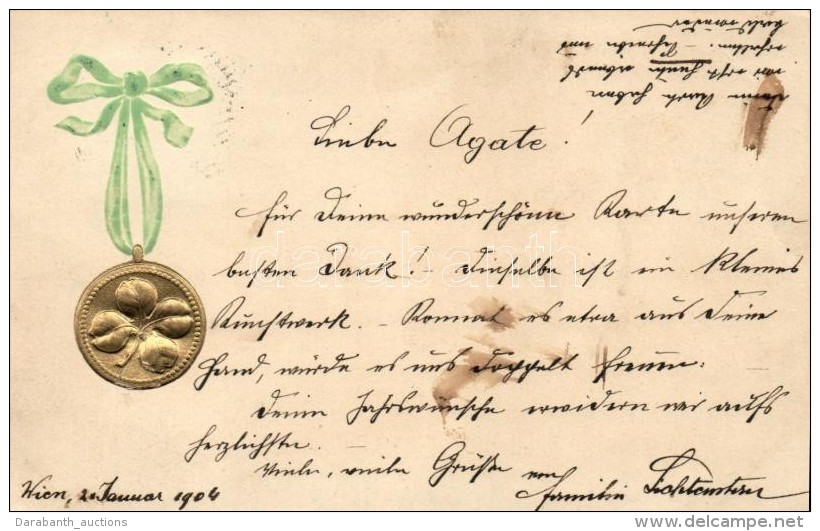 Liebe Agate!
für Deine wunderschöne Karte unseren
besten Dank! – Dieselbe ist ein kleines
Kunstwerk. – Kommt es etwa aus Deiner
Hand, würde es uns doppelt freuen.
Deine Jahrswünsche erwidern wir aufs
herzlichste. –
Viele, viele Grüße von
Familie Lichtenstern
Wien, 2. Januar 1904
Deine Karte haben
wir erst heute
erhalten. –
darabanth
Darabanth_auctions
www.delcampe.net